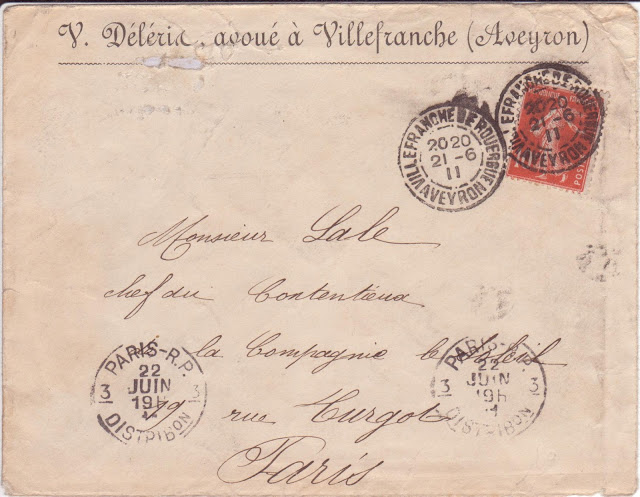 V. avoué à Villefranche (Aveyron)
VILLEFRANCHE DE ROUERGUE
2020
21 -6
11
AVEYRON
VILLEFRANCHE DE ROUERGUE
2020
21 -6
11
AVEYRON
POSTES
Monsieur Lale
chef du Contentieux
à la Compagnie le Soleil
rue Turgot
Paris
PARIS-R.P.
22
3 JUIN 3
19H
DISTRIBUTION
PARIS-R.P.
22
3 JUIN 3
19H
DISTRIBUTION